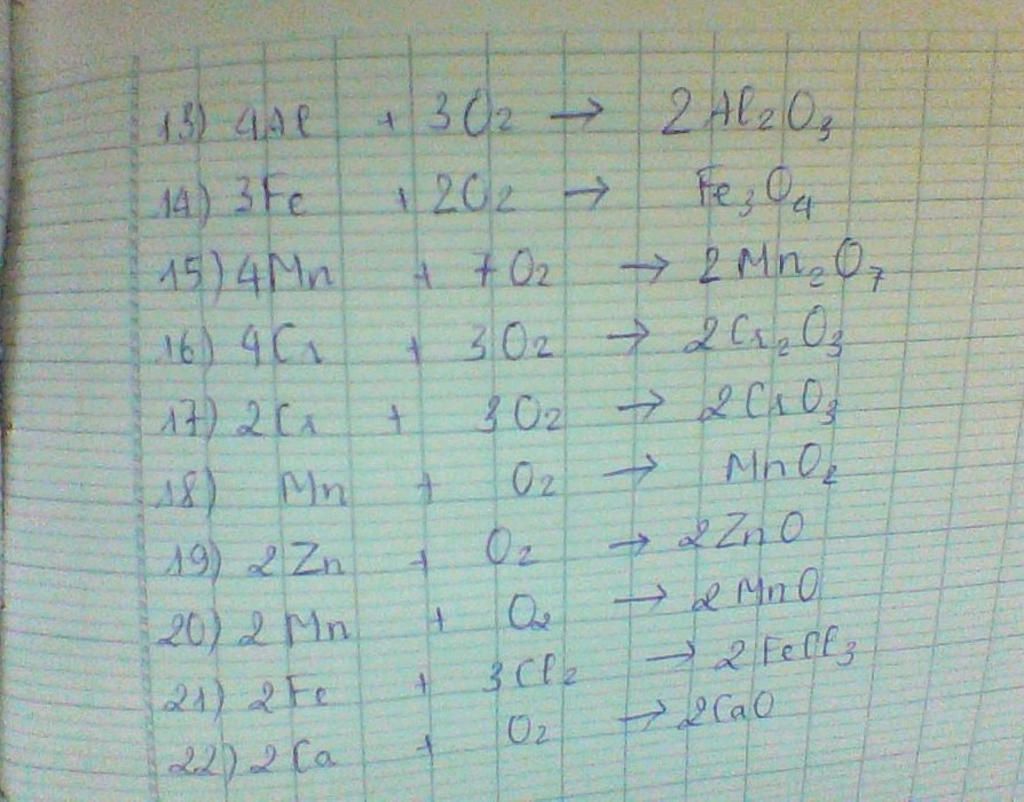 13) 4Al + 3O2 → 2Al2O3
14) 3Fe + 2O2 → Fe3O4
15) 4Mn + 7O2 → 2Mn2O7
16) 4Cr + 3O2 → 2Cr2O3
17) 2Cr + 3O2 → 2CrO3
18) Mn + O2 → MnO2
19) 2Zn + O2 → 2ZnO
20) 2Mn + O2 → 2MnO
21) 2Fe + 3Cl2 → 2FeCl3
22) 2Ca + O2 → 2CaO